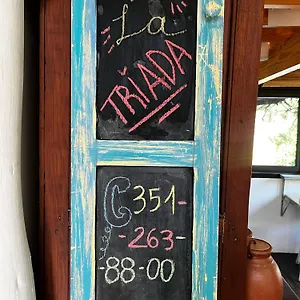 La
TRÍADA
351-
-263-
-88-00